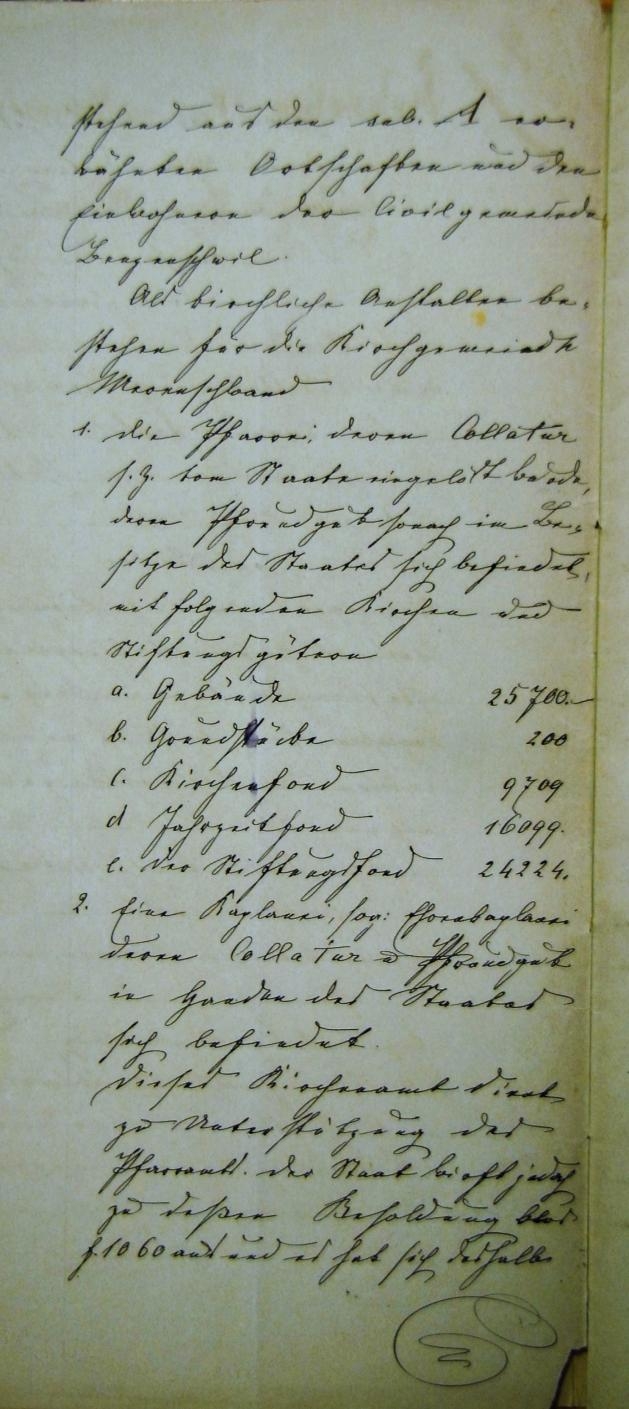 stehend aus den sub. A er-
wähnten Ortschaften und den
Einwohnern der Civilgemeinde
Benzenschwil.
Als kirchliche Anstalten be-
stehen für die Kirchgemeinde
Merenschwand
1. die Pfarrei, deren Collatur
s. Z. vom Staate eingelöst wurde,
deren Pfrundgut sonach im Be-
sitze des Staates sich befindet,
mit folgenden Kirchen und
Stiftungsgütern
a. Gebäude 25700.-
b. Grundstücke 200
c. Kirchenfond 9709
d Jahrzeitfond 16099.
e. der Stiftungsfond 24224.
2. Eine Kaplanei, sog: Ehrenkaplanei
deren Collatur u Pfrundgut
in Handen des Staates
sich befindet.
Dieses Kirchenamt dient
zu Unterstützung des
Pfarramts. Der Staat wirft jedoch
zu dessen Besoldung blos
f. 1060 aus und es hat sich deshalb